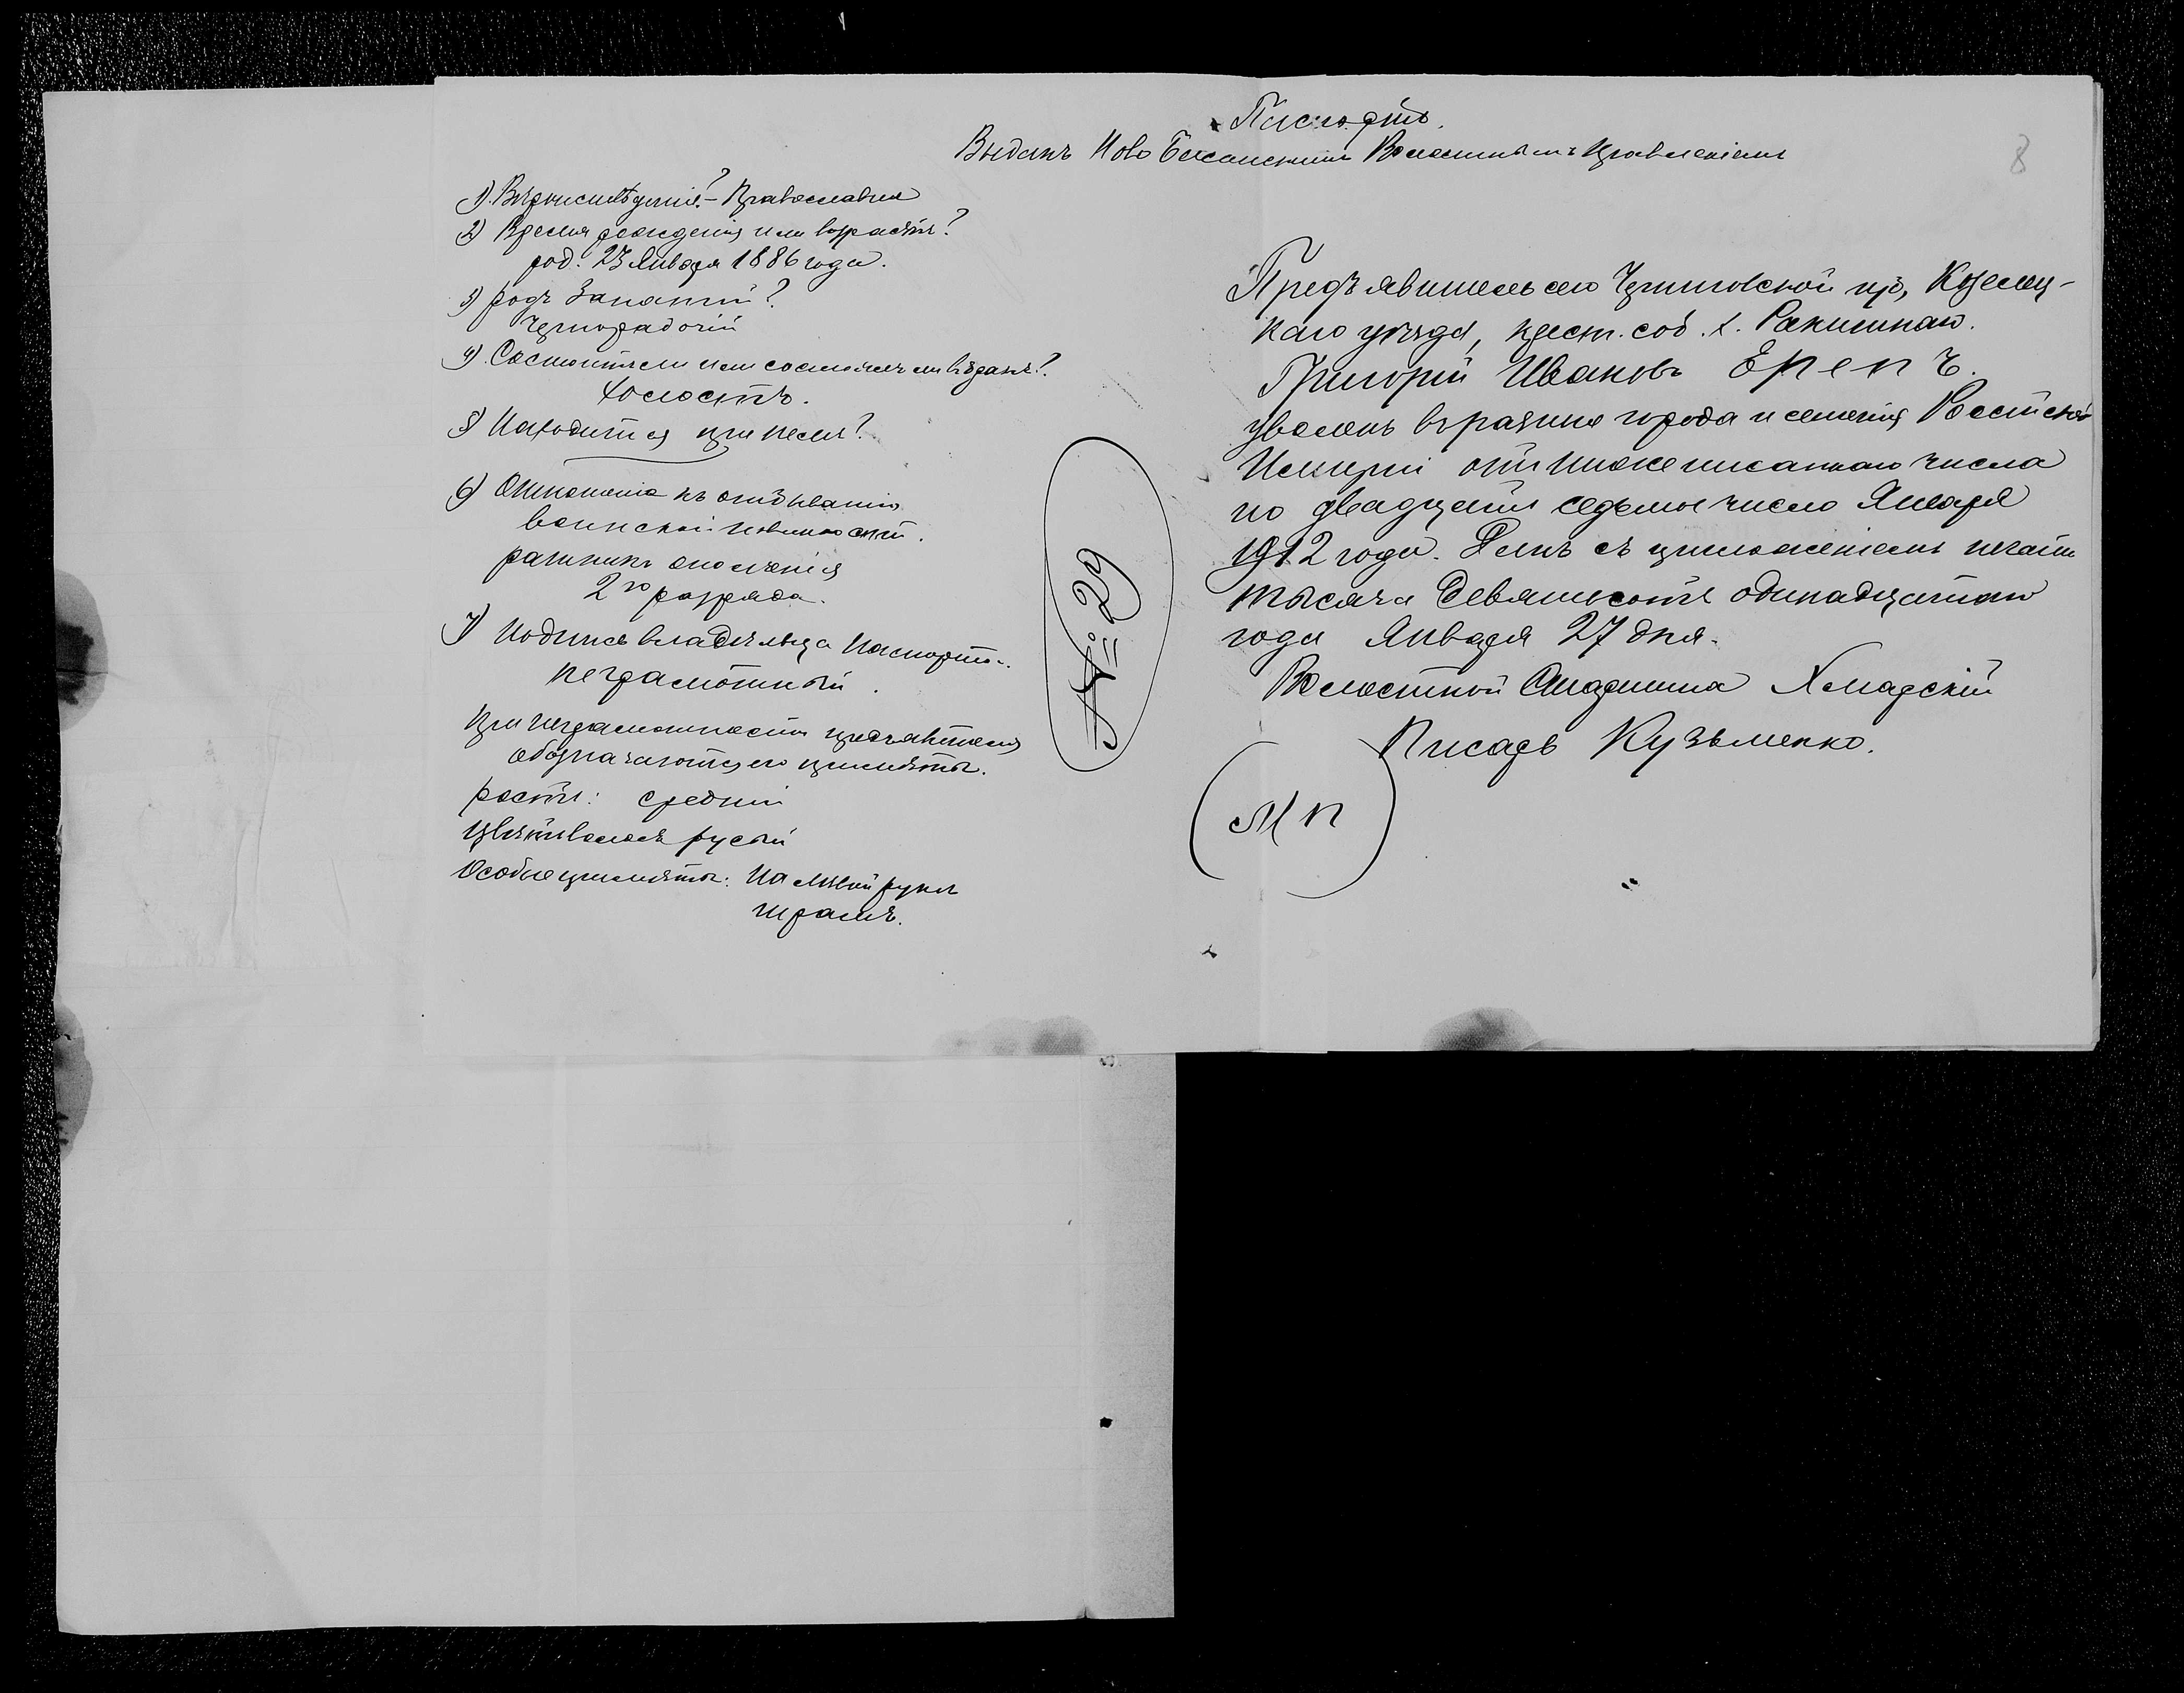 Паспортъ.
Выданъ Ново Басанскимъ Волостнымъ Правленіемъ
8
1) Вѣроисповѣданіе? – Православная
2) Время рожденія или возрастъ?
род. 23 Января 1886 года.
3) родъ Занятій?
Чернорабочій
4) Состоитъ ли или состоялъ ли въ бракѣ?
Холостъ.
5) Находится при немъ?
6) Отношеніе къ отбыванію
воинской повинности.
ратникъ ополченія
2го разряда.
7) Подпись владѣльца паспорта.
неграмотный.
при неграмотности предъявителя
обозначаются его примѣты.
ростъ: средній
Цвѣтъ волосъ русый
Особые примѣты: на лѣвой рукѣ
шрамъ.
№ 29
Предъявитель сего Черниговской губ, Козелец-
каго уѣзда, крест. соб.
Григорій Ивановъ Ерепъ.
уволенъ въ разные города и селенія Россійской
Имперіи отъ нижеписаннаго числа
по двадцать седьмое число Января
1912 года. Данъ съ приложеніемъ печати
тысяча девятьсотъ одинадцатаго
года Января 27 дня.
Волостной Старшина
Писарь Кузьменко.
МП